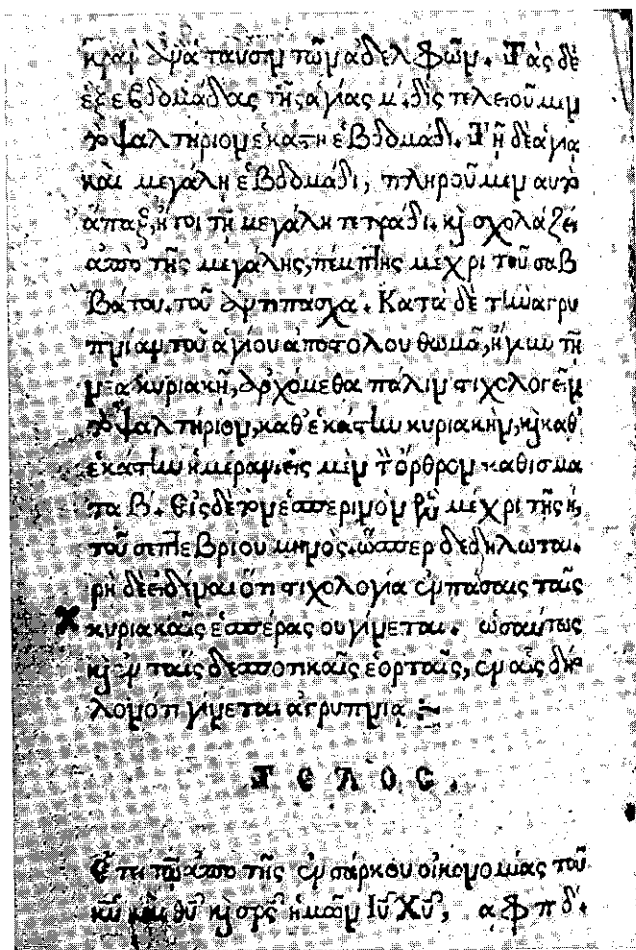 καὶ ἀνάπαυσιν τῶν ἀδελφῶν. Τὰς δὲ
ἓξ ἑβδομάδας τῆς ἁγίας μ. δὶς πλειοῦμεν
τὸ ψαλτήριον ἑκάστη ἑβδομάδι. Τῆ δὲ ἁγία
καὶ μεγάλη ἑβδομάδι, πληροῦμεν αυτὸ
ἅπαξ, ἤτοι τῆ μεγάλη τετράδι. κὶ σχολάζει
ἀπὸ τῆς μεγάλης πέμπτης μέχρι τοῦ σαβ
βάτου. τοῦ ἀντιπάσχα. Κατὰ δὲ τὴν ἀγρυ
πνίαν τοῦ ἁγίου ἀποστόλου θωμᾶ, ἤγουν τῆ
κυριακῆ, ἀρχόμεθα πάλιν στιχολογεῖν
τὸ ψαλτήριον, καθ' ἑκάστην κυριακὴν, κὶ καθ'
ἑκάστην ἡμέραν, εἰς μὲν τὸ ὄρθρον καθίσμα
τα β. Εἰς δὲ τὸν ἑσπερινὸν μέχρι τῆς κ,
τοῦ σεπτεβρίου μηνὸς. ὥσπερ δεδήλωται.
χρὴ δὲ εἰδέναι ὅτι στιχολογία ἐν πάσαις ταῖς
κυριακαῖς ἑσπέρας ου γίνεται. ὡσαύτως
κὶ ἐν ταῖς δεσποτικαῖς ἑορταῖς, ἐν αἷς δη
λονότι γίνεται ἀγρυπνία
ΤΕΛΟΣ.
Ἔτει τῷ ἀπὸ τῆς ἐνσάρκου οἰκονομίας τοῦ
κῦ καὶ θῦ κὶ σρς ἡμῶν Ιῦ Χῦ, αφπδ.